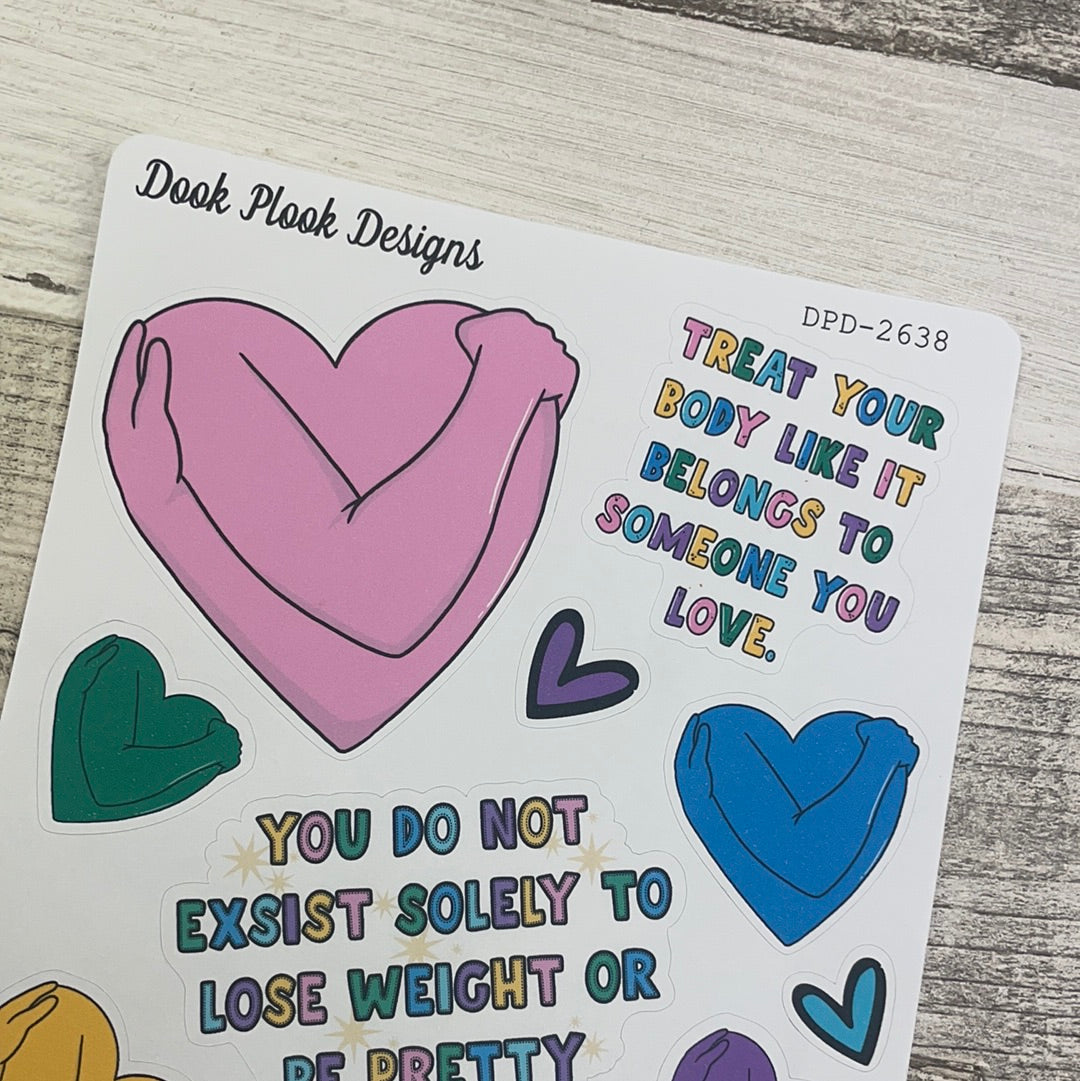 Dook Plook Designs
DPD-2638
TREAT YOUR
BODY LIKE IT
BELONGS TO
SOMEONE YOU
LOVE.
YOU DO NOT
EXSIST SOLELY TO
LOSE WEIGHT OR
BE PRETTY